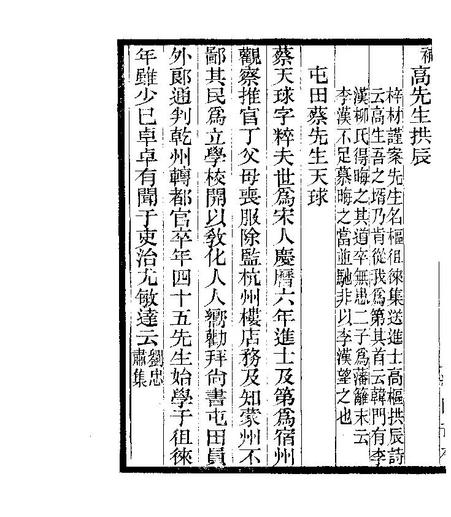 補高先生拱辰
梓材謹案先生名樞徂徠集送進士高樞拱辰詩
云高生吾之壻乃肯從我為第其首云韓門有李
漢柳氏得晦之其道卒無患二子為藩籬末云
李漢不足慕晦之當並馳非以李漢望之也
屯田蔡先生天球
蔡天球字粹夫世為宋人慶曆六年進士及第為宿州
觀察推官丁父母喪服除監杭州樓店務及知蒙州不
鄙其民為立學校開以教化人人嚮勸拜尚書屯田員
外郎通判乾州轉都官卒年四十五先生始學于徂徠
年雖少已卓卓有聞于吏治尤敏達云劉忠
肅集